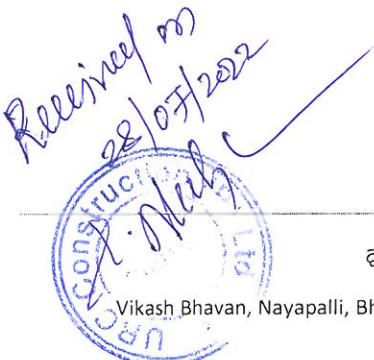 Received on
28/07/2022
URC Construction (P) Ltd
Vikash Bhavan, Nayapalli, Bh